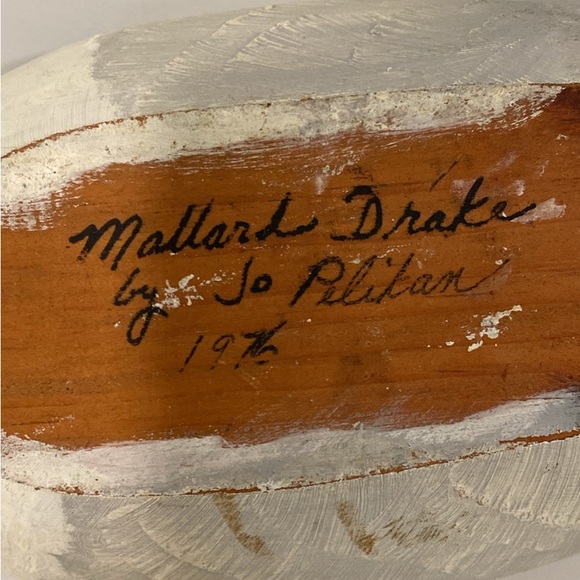 Mallard Drake
by Jo Pelikan
1976